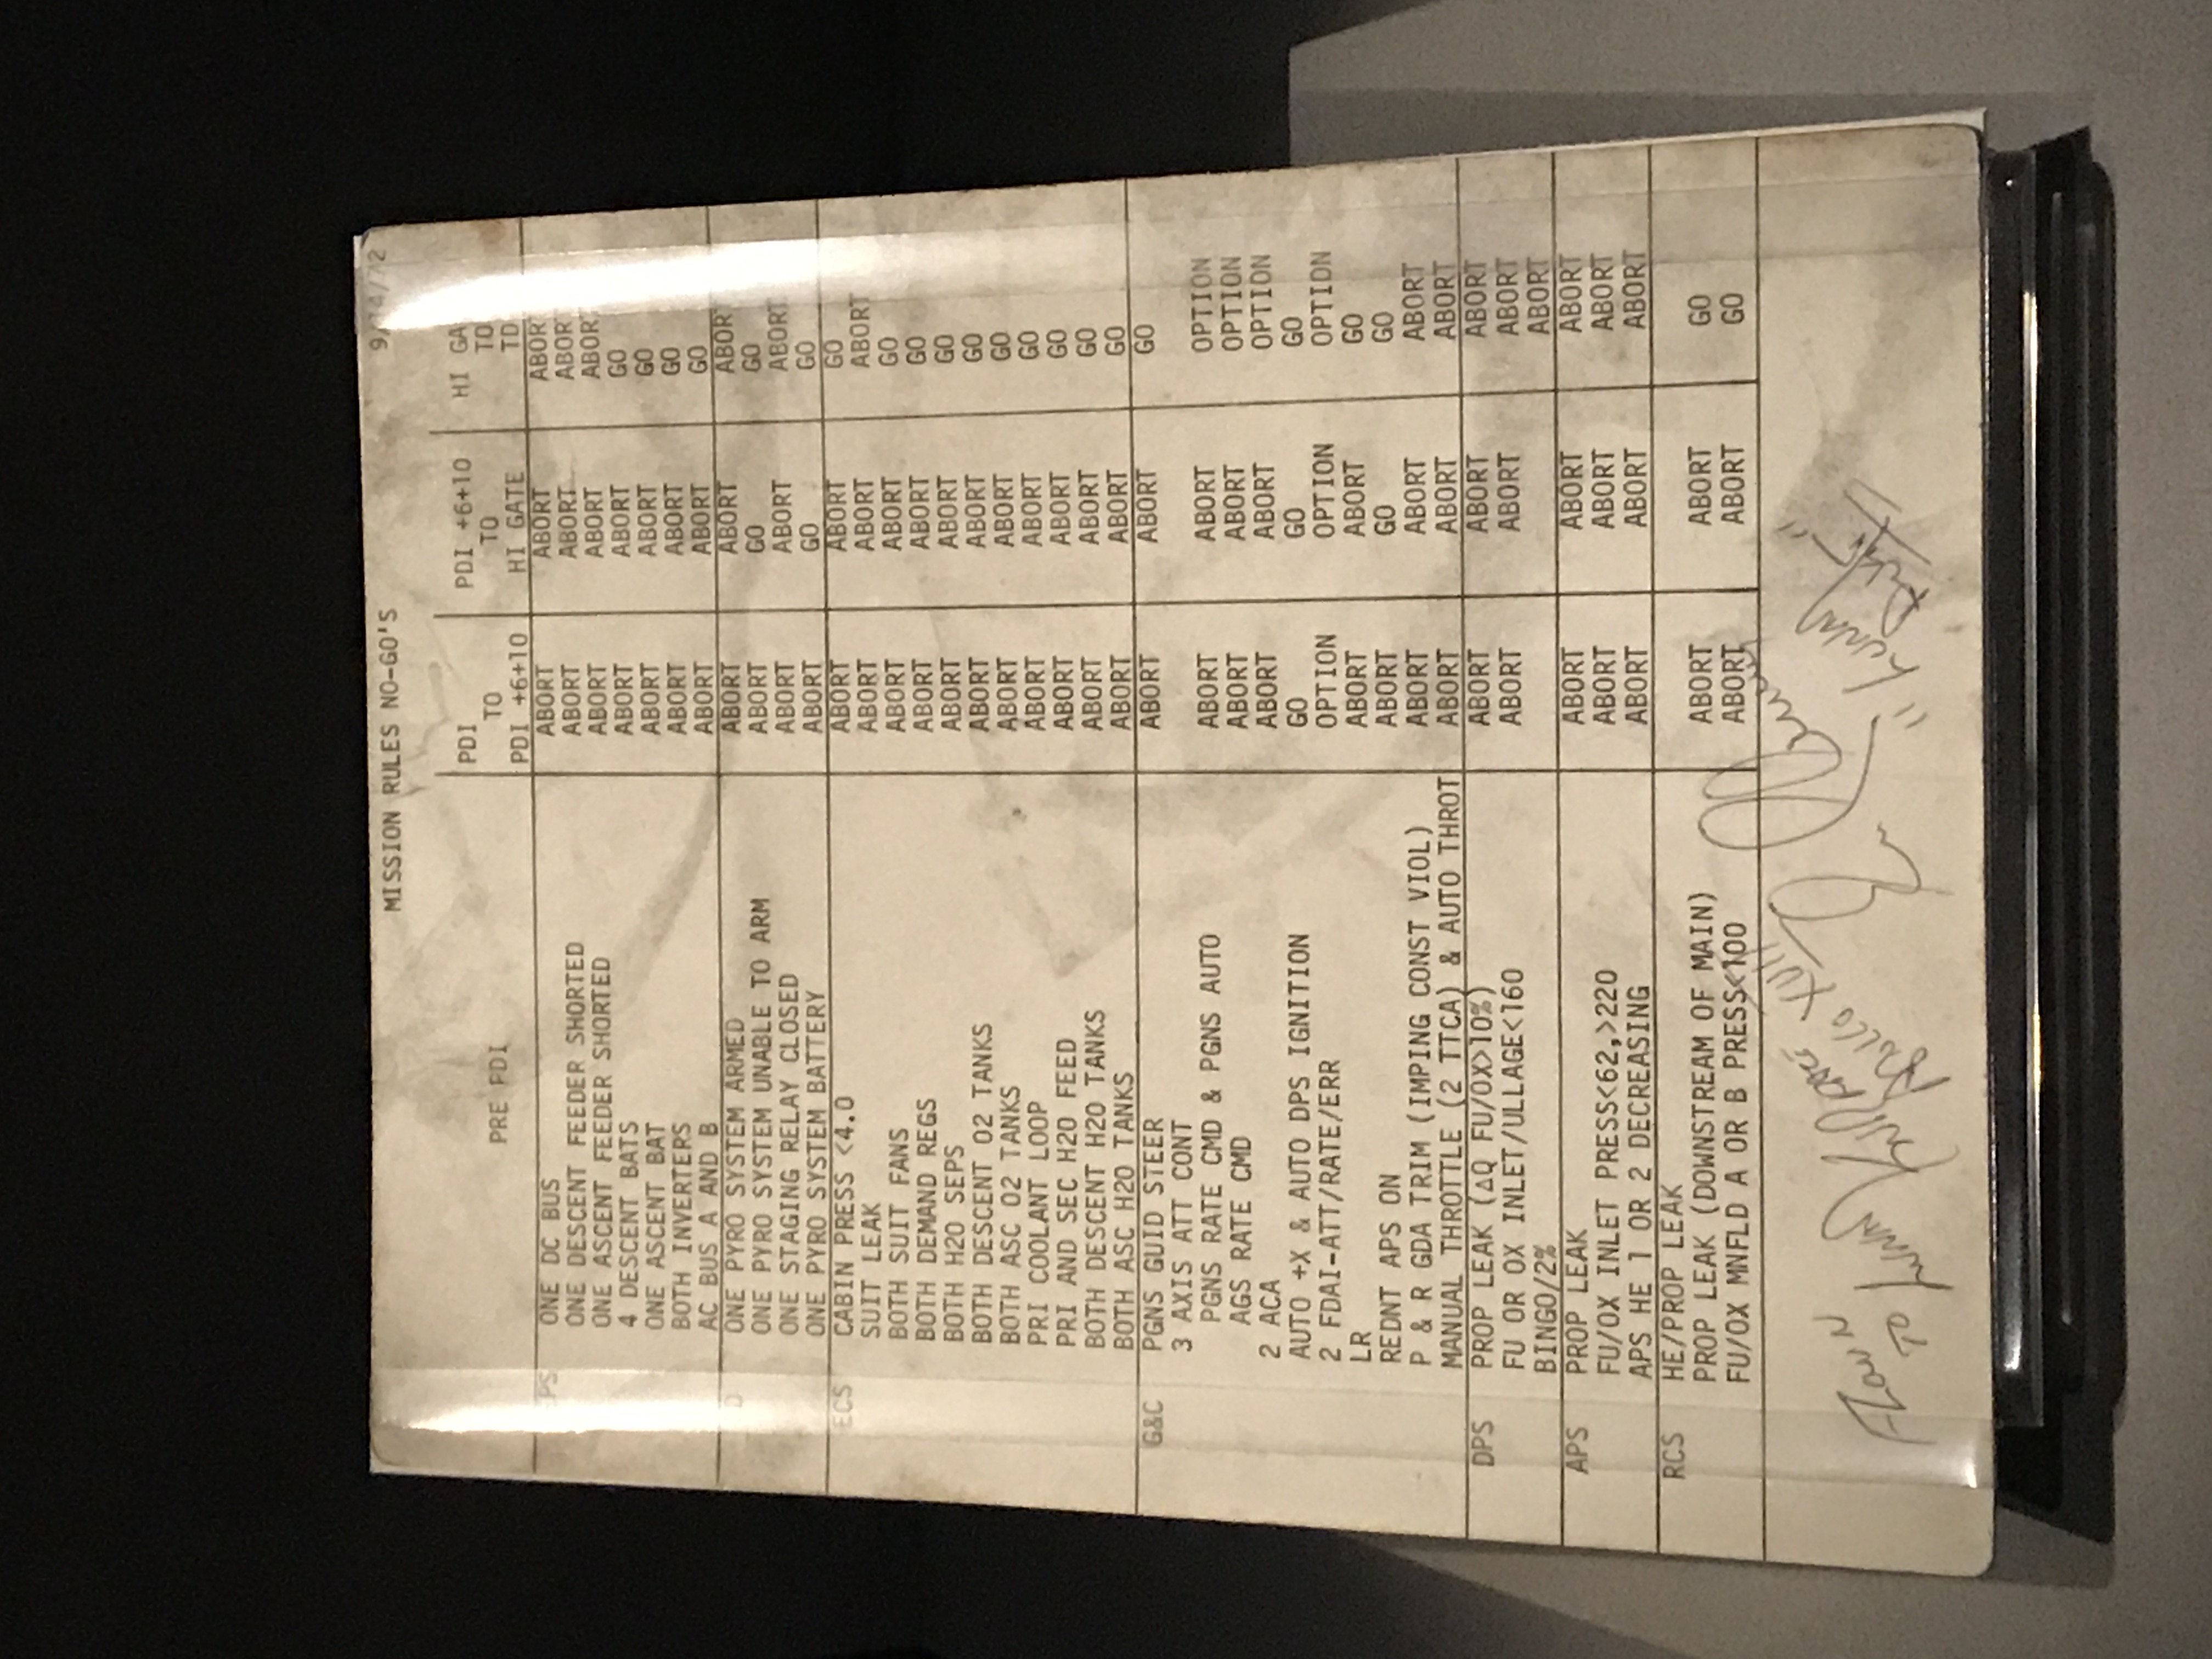 MISSION RULES NO-GO'S
PRE PDI PDI TO PDI +6+10 PDI +6+10 TO HI GATE HI TO TD
ONE DC BUS ABORT ABORT ABORT
ONE DESCENT FEEDER SHORTED ABORT ABORT ABORT
ONE ASCENT FEEDER SHORTED ABORT ABORT ABORT
4 DESCENT BATS ABORT ABORT GO
ONE ASCENT BAT ABORT ABORT GO
BOTH INVERTERS ABORT ABORT GO
AC BUS A AND B ABORT ABORT GO
ONE PYRO SYSTEM ARMED ABORT ABORT ABORT
ONE PYRO SYSTEM UNABLE TO ARM ABORT GO GO
ONE STAGING RELAY CLOSED ABORT ABORT ABORT
ONE PYRO SYSTEM BATTERY ABORT GO GO
ECS CABIN PRESS <4.0 ABORT ABORT GO
SUIT LEAK ABORT ABORT ABORT
BOTH SUIT FANS ABORT ABORT GO
BOTH DEMAND REGS ABORT ABORT GO
BOTH H2O SEPS ABORT ABORT GO
BOTH DESCENT O2 TANKS ABORT ABORT GO
BOTH ASC O2 TANKS ABORT ABORT GO
PRI COOLANT LOOP ABORT ABORT GO
PRI AND SEC H2O FEED ABORT ABORT GO
BOTH DESCENT H2O TANKS ABORT ABORT GO
BOTH ASC H2O TANKS ABORT ABORT GO
G&C PGNS GUID STEER ABORT ABORT GO
3 AXIS ATT CONT
PGNS RATE CMD & PGNS AUTO ABORT ABORT OPTION
AGS RATE CMD ABORT ABORT OPTION
2 ACA ABORT ABORT OPTION
AUTO +X & AUTO DPS IGNITION GO GO GO
2 FDAI-ATT/RATE/ERR OPTION OPTION OPTION
LR ABORT ABORT GO
REDNT APS ON ABORT GO GO
P & R GDA TRIM (IMPING CONST VIOL) ABORT ABORT ABORT
MANUAL THROTTLE (2 TTCA) & AUTO THROT ABORT ABORT ABORT
DPS PROP LEAK (ΔQ FU/OX>10%) ABORT ABORT ABORT
FU OR OX INLET/ULLAGE<160 ABORT ABORT ABORT
BINGO/2% ABORT
APS PROP LEAK ABORT ABORT ABORT
FU/OX INLET PRESS<62,>220 ABORT ABORT ABORT
APS HE 1 OR 2 DECREASING ABORT ABORT ABORT
RCS HE/PROP LEAK
PROP LEAK (DOWNSTREAM OF MAIN) ABORT ABORT GO
FU/OX MNFLD A OR B PRESS<100 ABORT ABORT GO
Flown
To Lunar Surface
Apollo XVII
"Lunar
Dust"